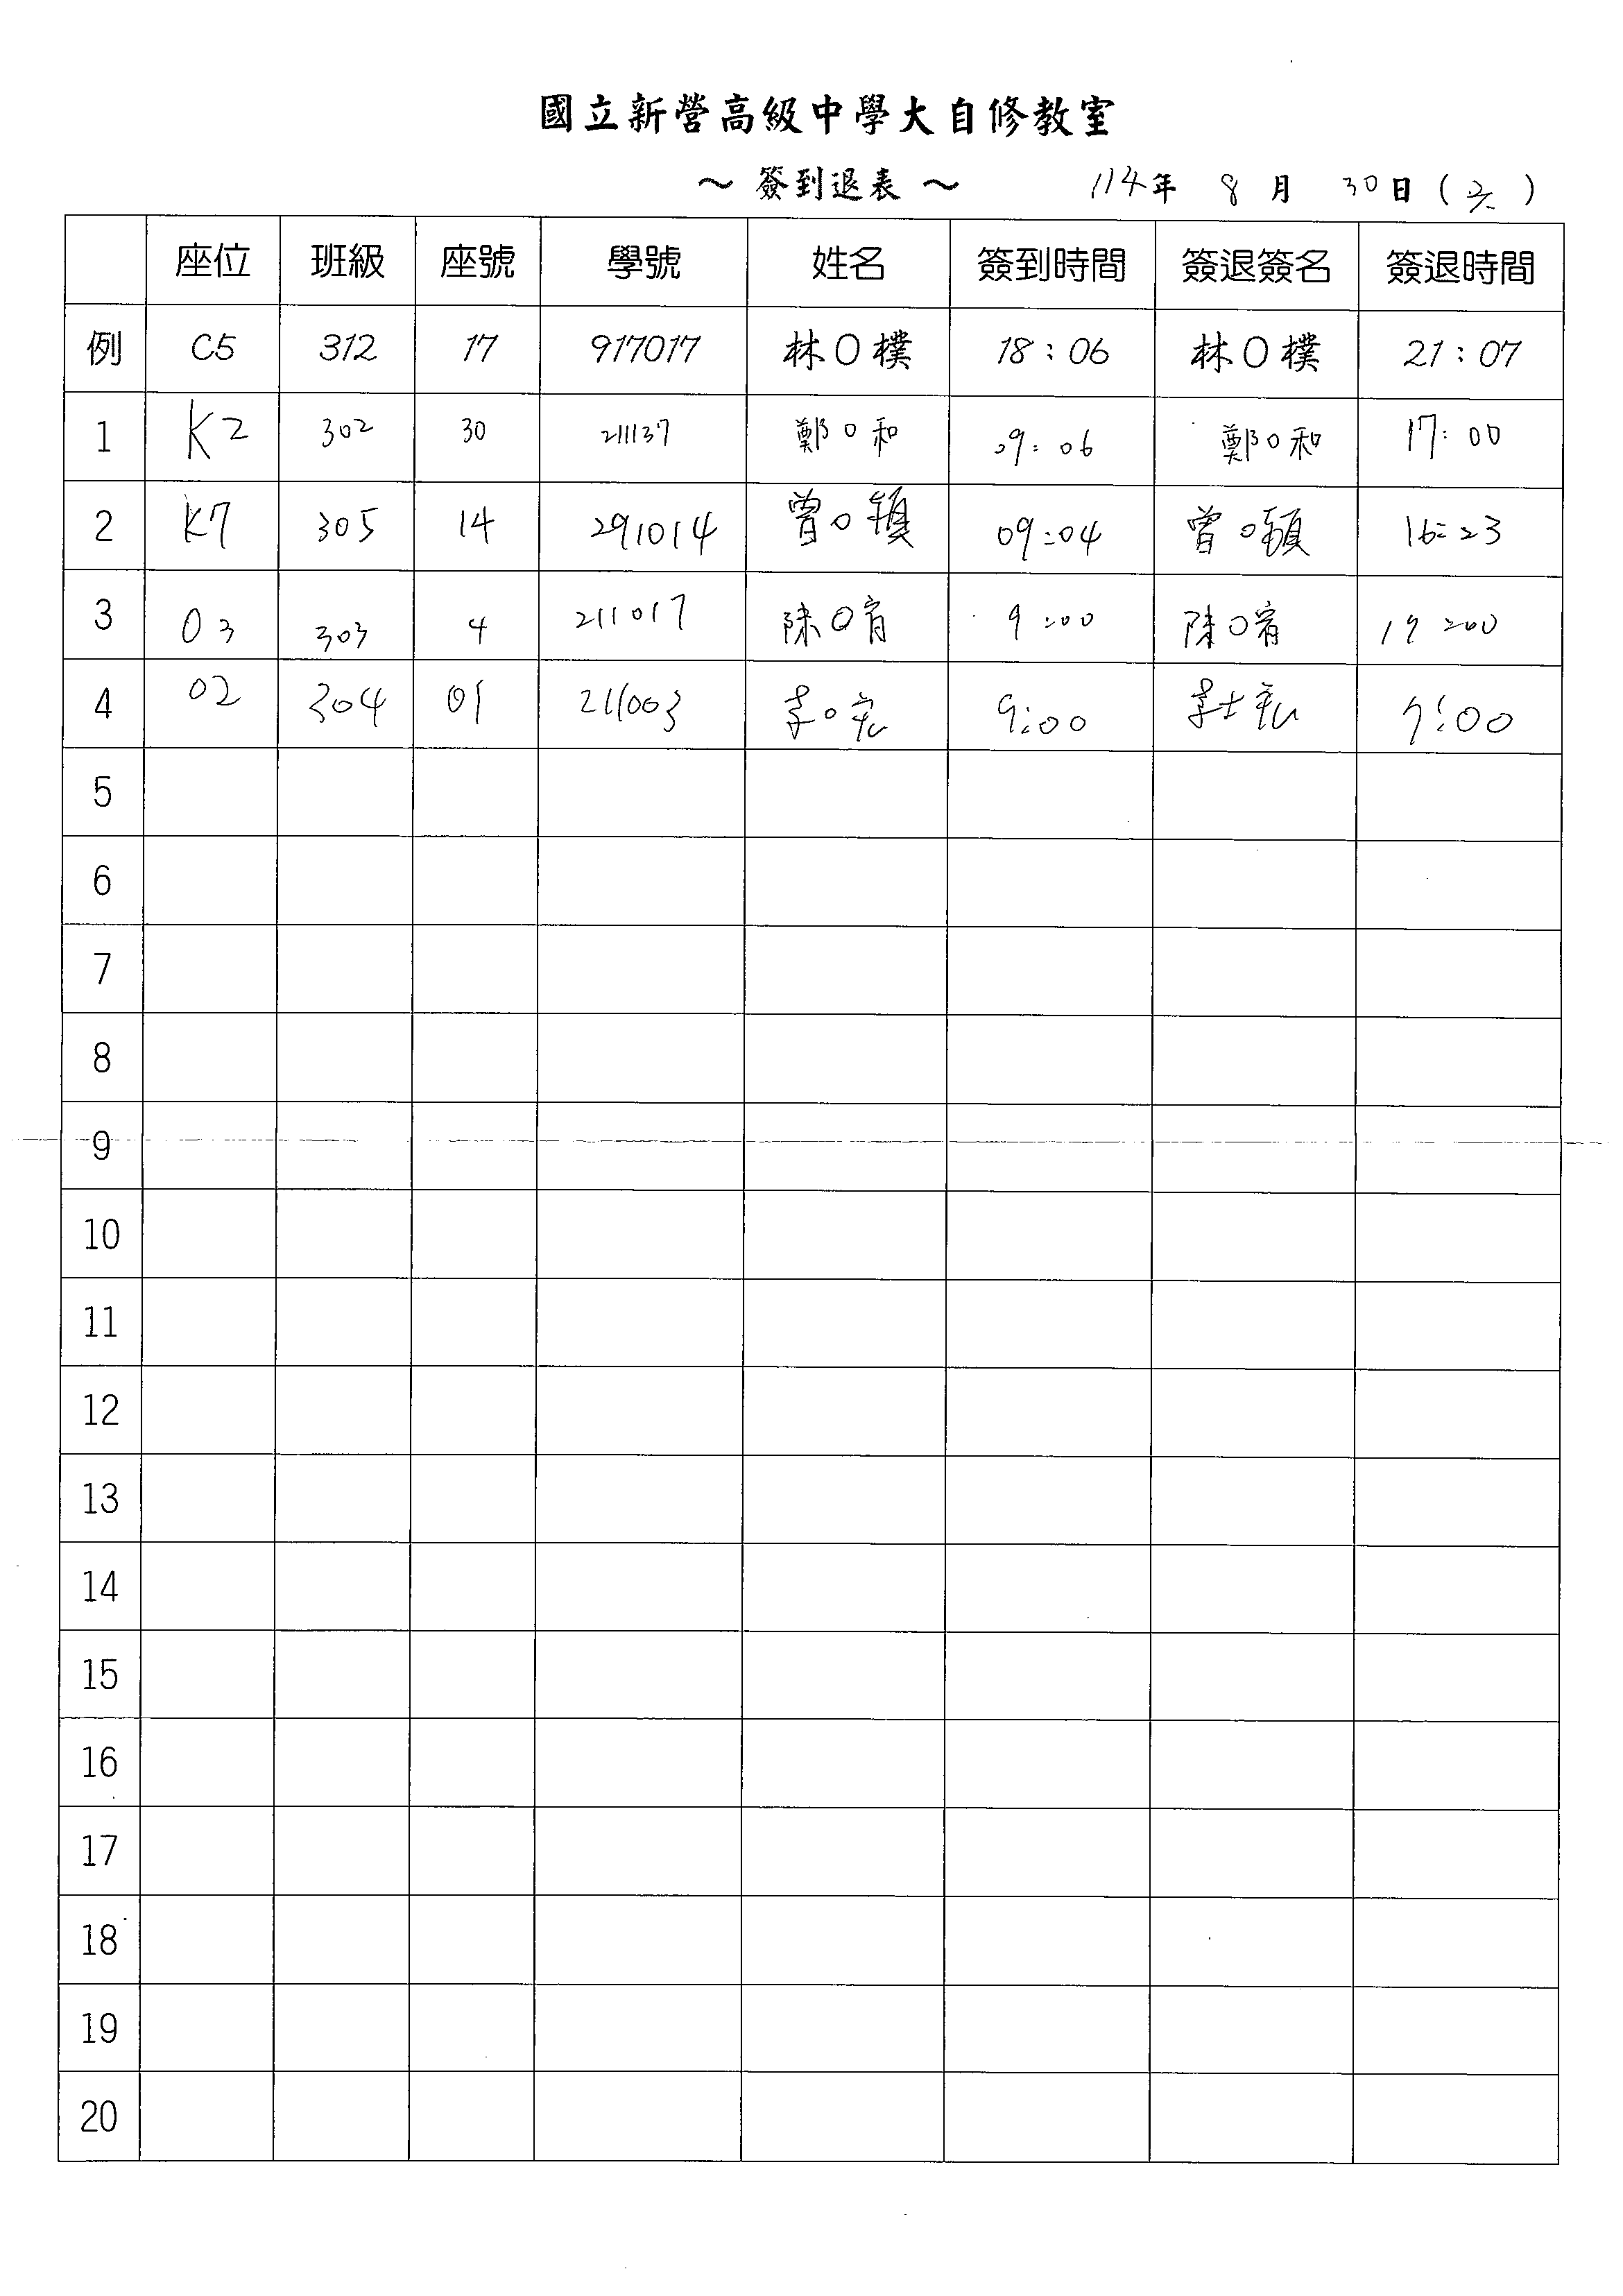 國立新營高級中學大自修教室
～ 簽到退表 ～ 114年 8月 30日 ( 六 )
座位 班級 座號 學號 姓名 簽到時間 簽退簽名 簽退時間
例 C5 312 17 917017 林〇樸 18:06 林〇樸 21:07
1 K2 302 30 211137 鄭〇和 09:06 鄭〇和 17:00
2 K7 305 14 291014 曾〇穎 09:04 曾〇穎 16:23
3 03 303 4 211017 陳〇宥 9:00 陳〇宥 17:00
4 02 304 01 211003 李〇宏 9:00 7:00
5
6
7
8
9
10
11
12
13
14
15
16
17
18
19
20